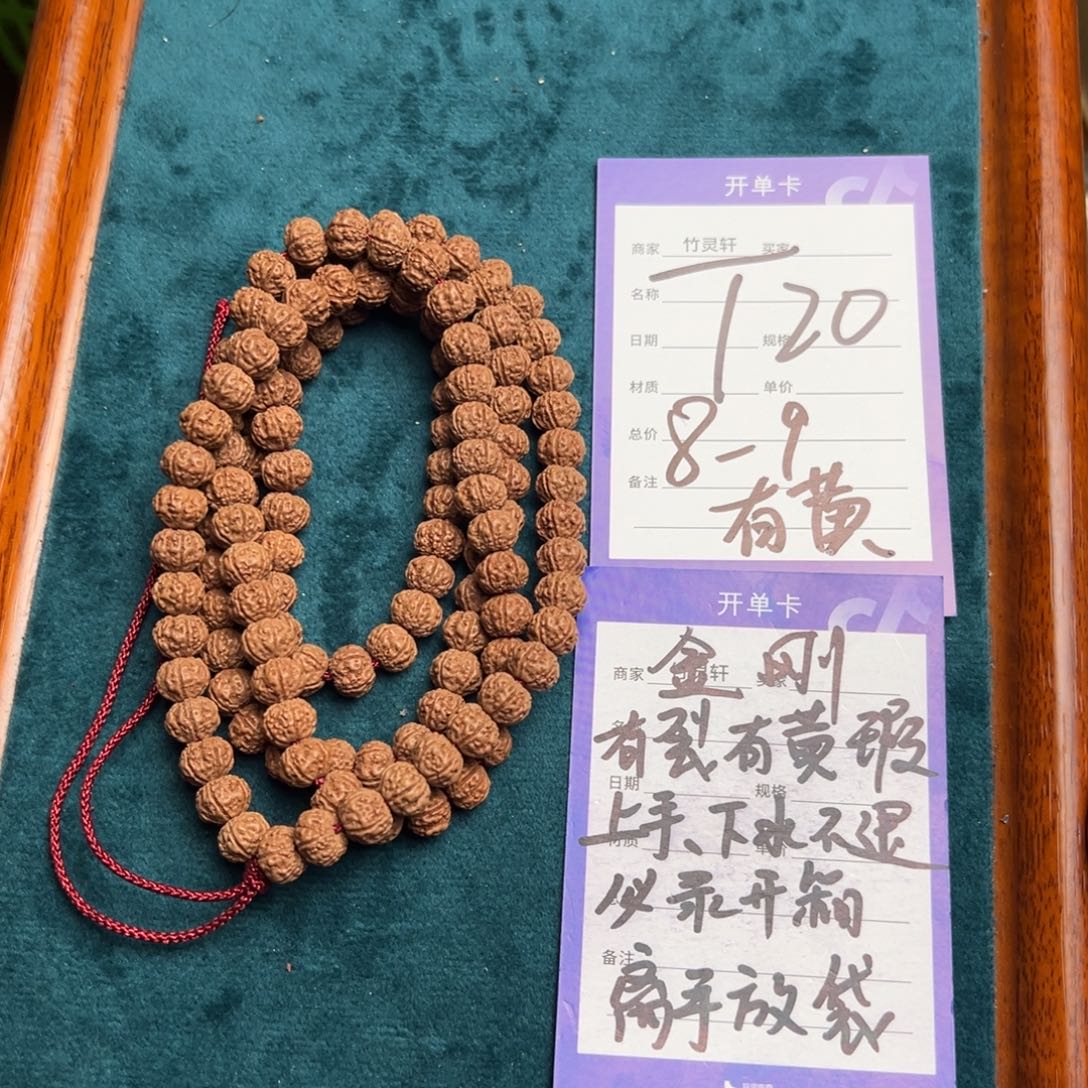 开单卡
商家 竹灵轩 买家
名称
120
日期 规格
材质 单价
总价
8-9
备注
有黄
开单卡
金刚
商家 竹灵轩 买家
有裂有黄瑕
日期 规格
上手、下水不退
材质 单价
必录开箱
备注
离手放袋